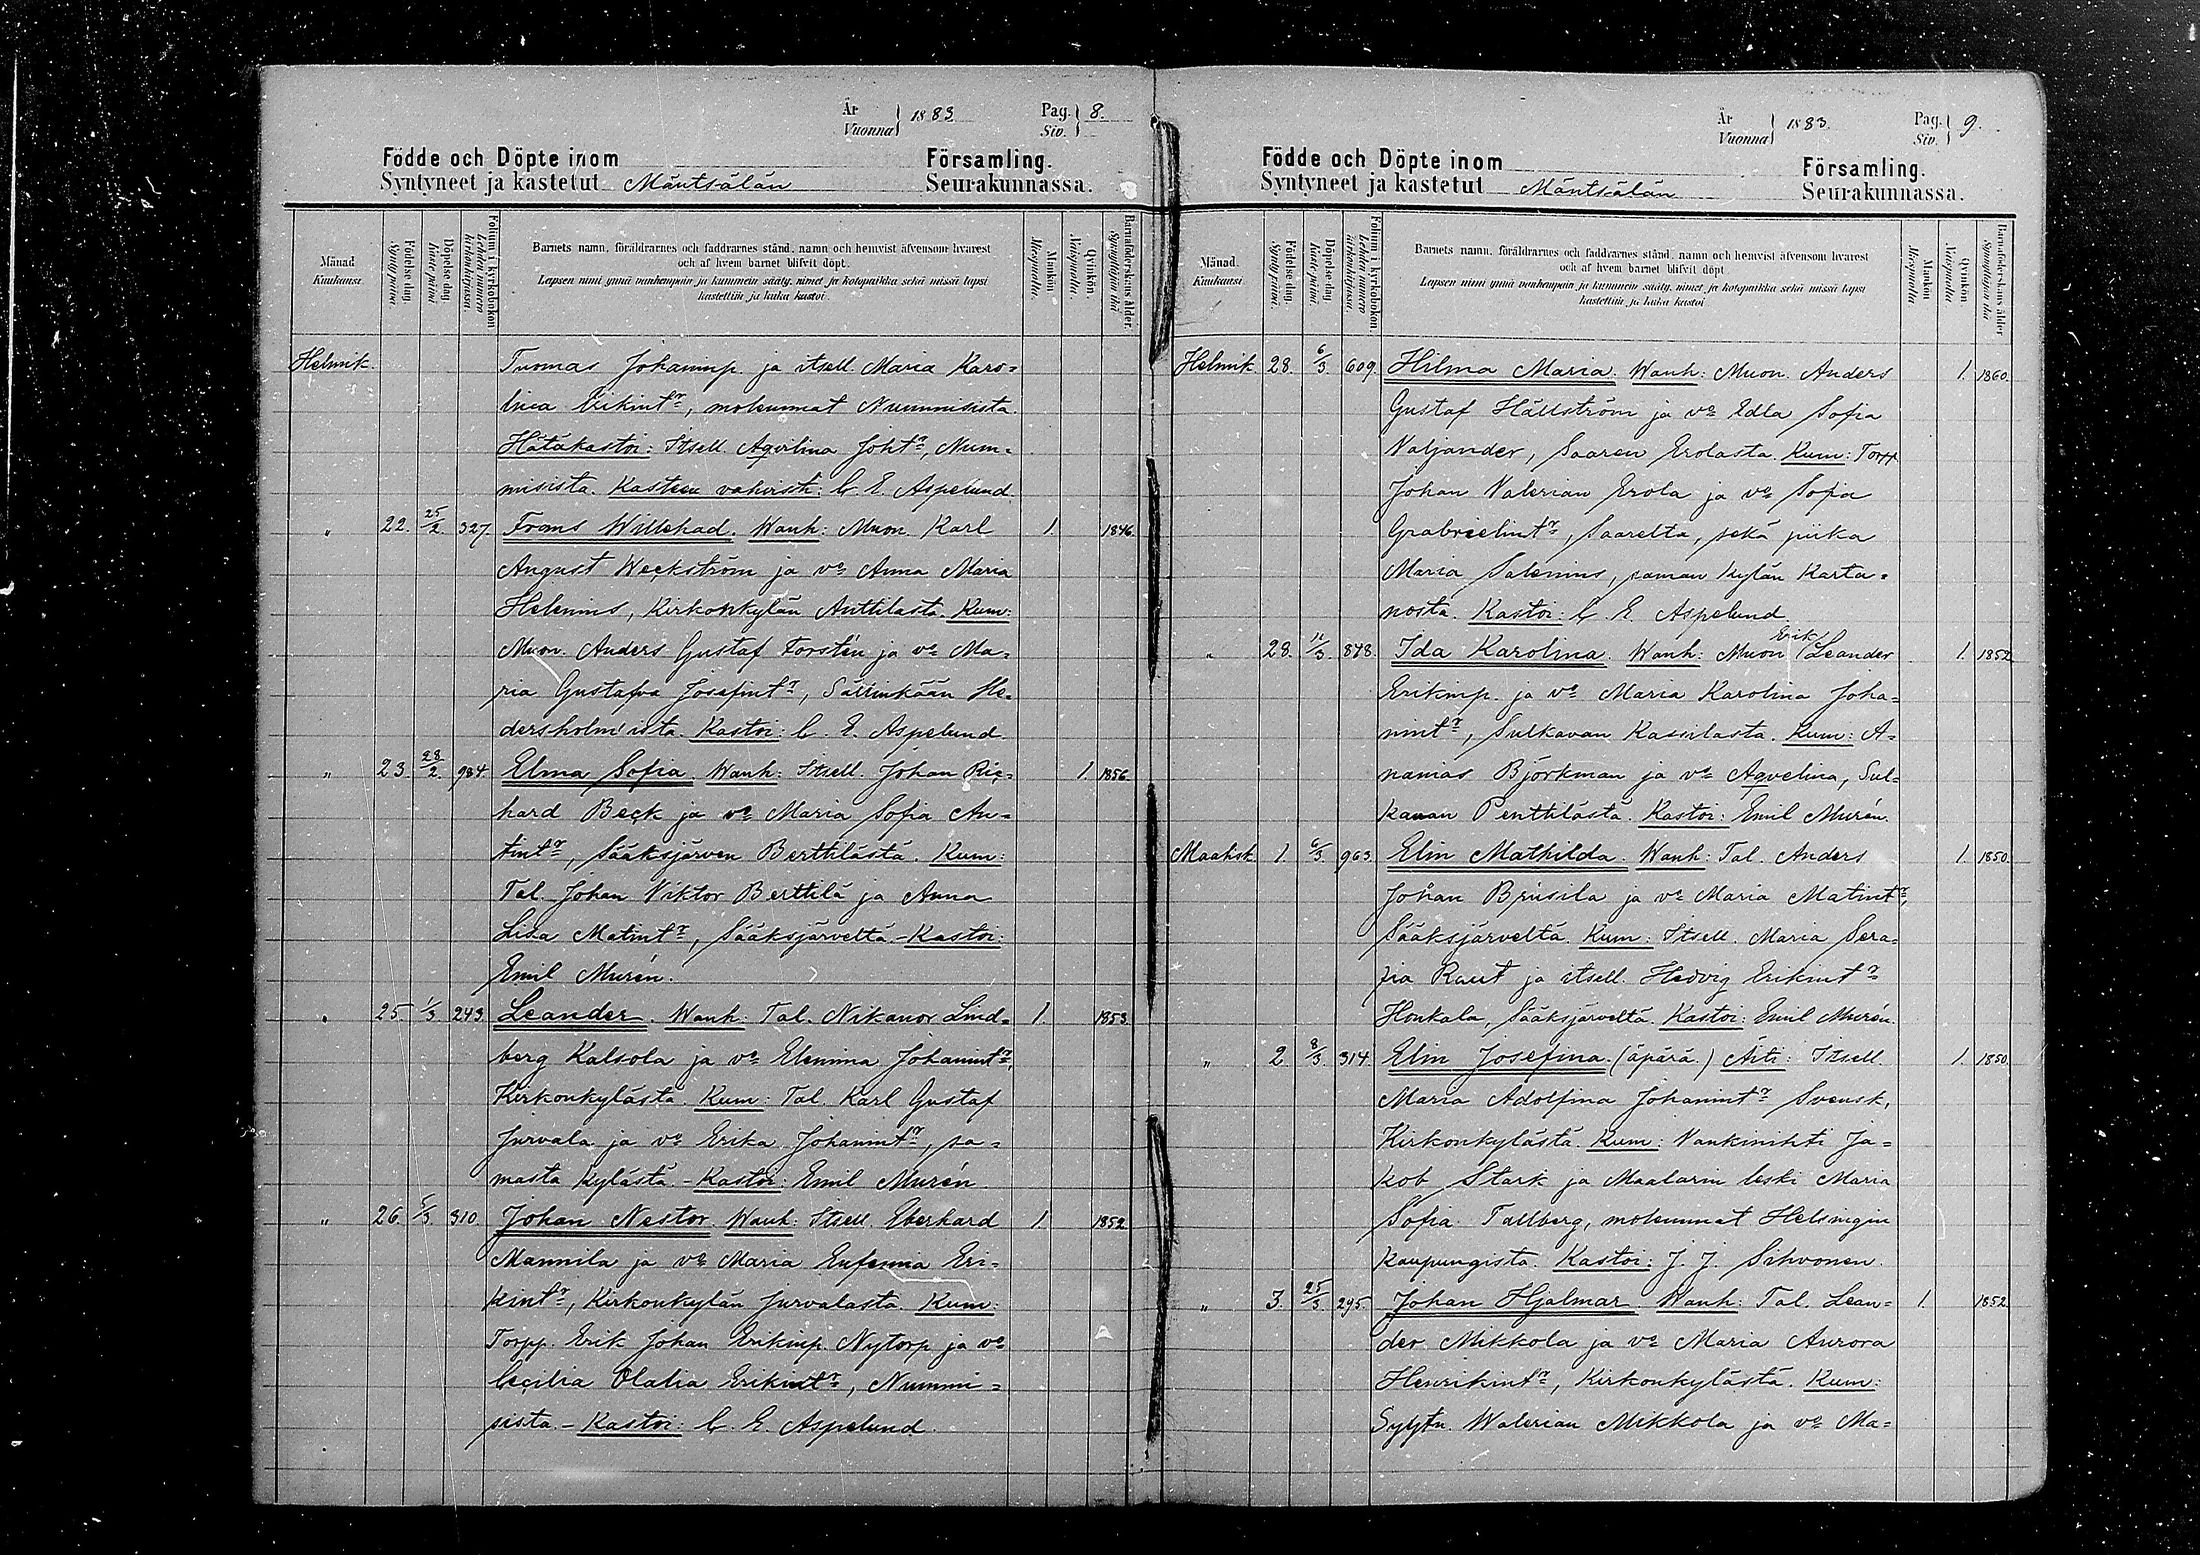 År
Vuonna 1883. Pag. Siv. 8.
Födde och Döpte inom Församling.
Syntyneet ja kastetut Mäntsälän Seurakunnassa.
Månad. Kuukausi.
Födelse dag. Syntypäivä.
Döpelse dag. Kastepäivä.
Folium i kyrkobokon.
Barnets namn, föräldrarnes och faddrarnes stånd, namn och hemvist äfvensom hvarest
och af hvem barnet blifvit döpt.
Lapsen nimi ynnä vanhempain ja kummein sääty, nimet ja kotopaikka sekä missä lapsi
kastettiin ja kuka kastoi.
Mankön. Miespuolta.
Qvinkön. Naispuolta.
Barnaföderskans ålder. Synnyttäjän ikä
Helmik. Tuomas Johaninp. ja itsell. Maria Karo-
lina Erikint:r, molemmat Nummisista.
Hätäkastoi: Itsell. Aqvilina Joh:t:r, Num-
misista. Kasteen vahvisti: C. E. Aspelund.
" 22. 25/2. 327. Froms Willehad. Wanh: Muon. Karl 1. 1846.
August Weckström ja v:o Anna Maria
Helenius, Kirkonkylän Anttilasta. Kum:
Muon. Anders Gustaf Forstén ja v:o Ma-
ria Gustafva Josefint:r, Sälinkään He-
dersholm'ista. Kastoi: C. E. Aspelund.
" 23. 28/2. 984. Elma Sofia. Wanh: Itsell. Johan Ric- 1. 1856.
hard Beck ja v:o Maria Sofia An-
tint:r, Sääksjärven Berttilästä. Kum:
Tal. Johan Viktor Berttilä ja Anna
Lisa Matint:r, Sääksjärveltä. - Kastoi:
Emil Murén.
" 25. 1/3. 243. Leander. Wanh: Tal. Nikanor Lind- 1. 1853.
berg Kalsola ja v:o Elenina Johanint:r,
Kirkonkylästä. Kum: Tal. Karl Gustaf
Jurvala ja v:o Erika Johanint:r, sa-
masta kylästä. - Kastoi: Emil Murén.
" 26. /3 310. Johan Nestor. Wanh: Itsell. Eberhard 1. 1852.
Mannila ja v:o Maria Eufemia Eri-
kint:r, Kirkonkylän Jurvalasta. Kum:
Torpp. Erik Johan Erikinp. Nytorp ja v:o
Cecilia Olalia Erikint:r, Nummi-
sista. - Kastoi: C. E. Aspelund.
År
Vuonna 1883. Pag. Siv. 9.
Födde och Döpte inom Församling.
Syntyneet ja kastetut Mäntsälän Seurakunnassa.
Månad. Kuukausi.
Födelse dag. Syntypäivä.
Döpelse dag. Kastepäivä.
Folium i kyrkobokon.
Barnets namn, föräldrarnes och faddrarnes stånd, namn och hemvist äfvensom hvarest
och af hvem barnet blifvit döpt.
Lapsen nimi ynnä vanhempain ja kummein sääty, nimet ja kotopaikka sekä missä lapsi
kastettiin ja kuka kastoi.
Mankön. Miespuolta
Qvinkön. Naispuolta
Barnaföderskans ålder Synnyttäjän ikä
Helmik. 28. 6/3. 609. Hilma Maria. Wanh: Muon. Anders 1. 1860.
Gustaf Hällström ja v:o Edla Sofia
Valjander, Saaren Erolasta. Kum: Torpp
Johan Valerian Erola ja v:o Sofia
Grabrielint:r, Saarelta, sekä piika
Maria Salenius, saman kylän Karta-
nosta. Kastoi: C. E. Aspelund.
" 28. 11/3. 848. Ida Karolina. Wanh: Muon Erik Leander 1. 1852
Erikinp. ja v:o Maria Karolina Joha-
nint:r, Sulkavan Kassilasta. Kum: A-
nanias Björkman ja v:o Aqvelina, Sul-
kavan Penttilästä. Kastoi: Emil Murén.
Maalisk. 1. 6/3 963. Elin Mathilda. Wanh: Tal. Anders 1. 1850.
Johan Brusila ja v:o Maria Matint:r,
Sääksjärveltä. Kum: Itsell. Maria Sera-
fia Ruut ja itsell. Hedvig Erikint:r
Honkala, Sääksjärveltä. Kastoi: Emil Murén.
" 2. 8/3. 314. Elin Josefina. (äpärä.) Äiti: Itsell. 1. 1850.
Maria Adolfina Johanint:r Svensk,
Kirkonkylästä. Kum: Vankinihti Ja-
kob Stark ja Maalarin leski Maria
Sofia Tallberg, molemmat Helsingin
kaupungista. Kastoi: J. J. Sihvonen.
" 3. 25/3 295. Johan Hjalmar. Wanh: Tal. Lean- 1. 1852.
der Mikkola ja v:o Maria Aurora
Henrikint:r, Kirkonkylästä. Kum:
Sytytn. Walerian Mikkola ja v:o Ma-